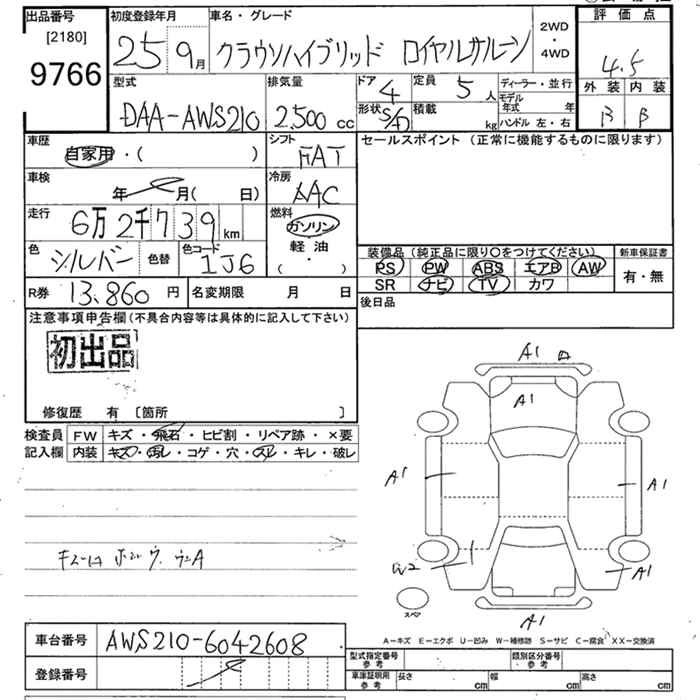 出品番号
[2180]
9766
初度登録年月
25 9月
車名・グレード
クラウンハイブリッド ロイヤルサルーン
2WD
・
4WD
評価点
4.5
外装 内装
B B
型式
DAA-AWS210
排気量
2,500 cc
ドア 4
定員 5 人
形状 S/D
積載 kg
ディーラー・並行
モデル年式 年
ハンドル 左・右
車歴
自家用・( )
シフト
FAT
車検
年 月( 日)
冷房
AAC
走行
6万2千739 km
燃料
ガソリン
軽油
( ・ )
色 シルバー 色替
色コード 1J6
R券 13,860 円
名変期限 月 日
セールスポイント (正常に機能するものに限ります)
装備品 (純正品に限り〇をつけてください)
新車保証書
PS PW ABS エアB AW
SR ナビ TV カワ
有・無
後日品
注意事項申告欄 (不具合内容等は具体的に記入して下さい)
初出品
修復歴 有 〔箇所 〕
検査員
記入欄
FW キズ・飛石・ヒビ割・リペア跡・×要
内装 キズ・汚レ・コゲ・穴・スレ・キレ・破レ
A1
A1
A1
A1
W2
A1
A1
スペア
A－キズ E－エクボ U－凹み W－補修跡 S－サビ C－腐食 XX－交換済
車台番号 AWS210-6042608
登録番号
型式指定番号
参考
類別区分番号
参考
車庫証明用
参考
長さ cm
幅 cm
高さ cm